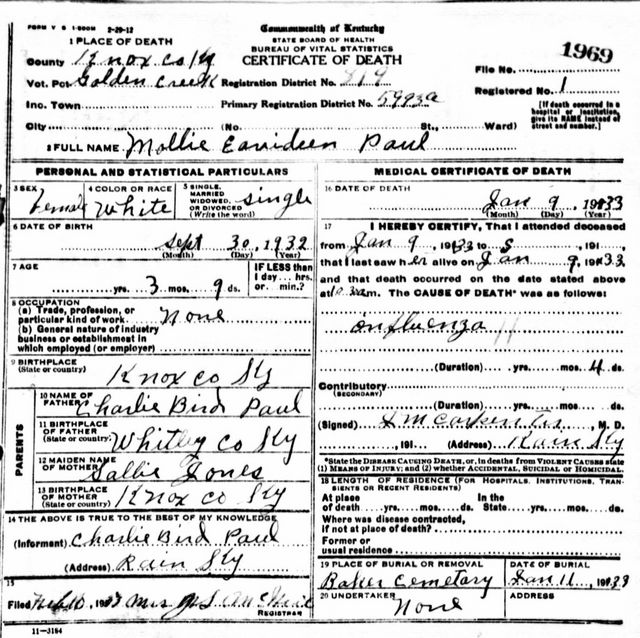 FORM V S 1-500M 2-29-12
Commonwealth of Kentucky
STATE BOARD OF HEALTH
BUREAU OF VITAL STATISTICS
CERTIFICATE OF DEATH
1 PLACE OF DEATH
County Knox co Ky
Vot. Pct Golden Creek Registration District No. 819
Inc. Town Primary Registration District No. 5993a
City (No. St., Ward)
File No. 1969
Registered No. 1
[If death occurred in a hospital or institution, give its NAME instead of street and number.]
2 FULL NAME Mollie Paul
PERSONAL AND STATISTICAL PARTICULARS
3 SEX Female
4 COLOR OR RACE White
5 SINGLE, MARRIED WIDOWED, OR DIVORCED (Write the word) Single
6 DATE OF BIRTH Sept 30, 1932
(Month) (Day) (Year)
7 AGE yrs. 3 mos. 9 ds.
IF LESS than 1 day... hrs. or min.?
8 OCCUPATION
(a) Trade, profession, or particular kind of work None
(b) General nature of industry business or establishment in which employed (or employer)
9 BIRTHPLACE (State or country)
Knox co Ky
PARENTS
10 NAME OF FATHER Charlie Bird Paul
11 BIRTHPLACE OF FATHER (State or country) Whitley co Ky
12 MAIDEN NAME OF MOTHER Sallie Jones
13 BIRTHPLACE OF MOTHER (State or country) Knox co Ky
14 THE ABOVE IS TRUE TO THE BEST OF MY KNOWLEDGE
(Informant) Charlie Bird Paul
(Address) Rain Ky
15
Filed Feb 10, 1933 Mrs REGISTRAR
11-3184
MEDICAL CERTIFICATE OF DEATH
16 DATE OF DEATH
Jan 9, 1933
(Month) (Day) (Year)
17 I HEREBY CERTIFY, That I attended deceased
from Jan 9, 1933 to 191
that I last saw her alive on Jan 9, 1933
and that death occurred on the date stated above
at m. The CAUSE OF DEATH* was as follows:
influenza
(Duration) yrs. mos. 4 ds.
Contributory (SECONDARY)
(Duration) yrs. mos. ds.
(Signed) M. D.
, 191 (Address) Rain Ky
*State the DISEASE CAUSING DEATH, or, in deaths from VIOLENT CAUSES state (1) MEANS OF INJURY; and (2) whether ACCIDENTAL, SUICIDAL or HOMICIDAL.
18 LENGTH OF RESIDENCE (FOR HOSPITALS, INSTITUTIONS, TRANSIENTS OR RECENT RESIDENTS)
At place of death yrs. mos. ds. In the State yrs. mos. ds.
Where was disease contracted, if not at place of death?
Former or usual residence
19 PLACE OF BURIAL OR REMOVAL Baker Cemetary
DATE OF BURIAL Jan 11, 1933
20 UNDERTAKER None
ADDRESS